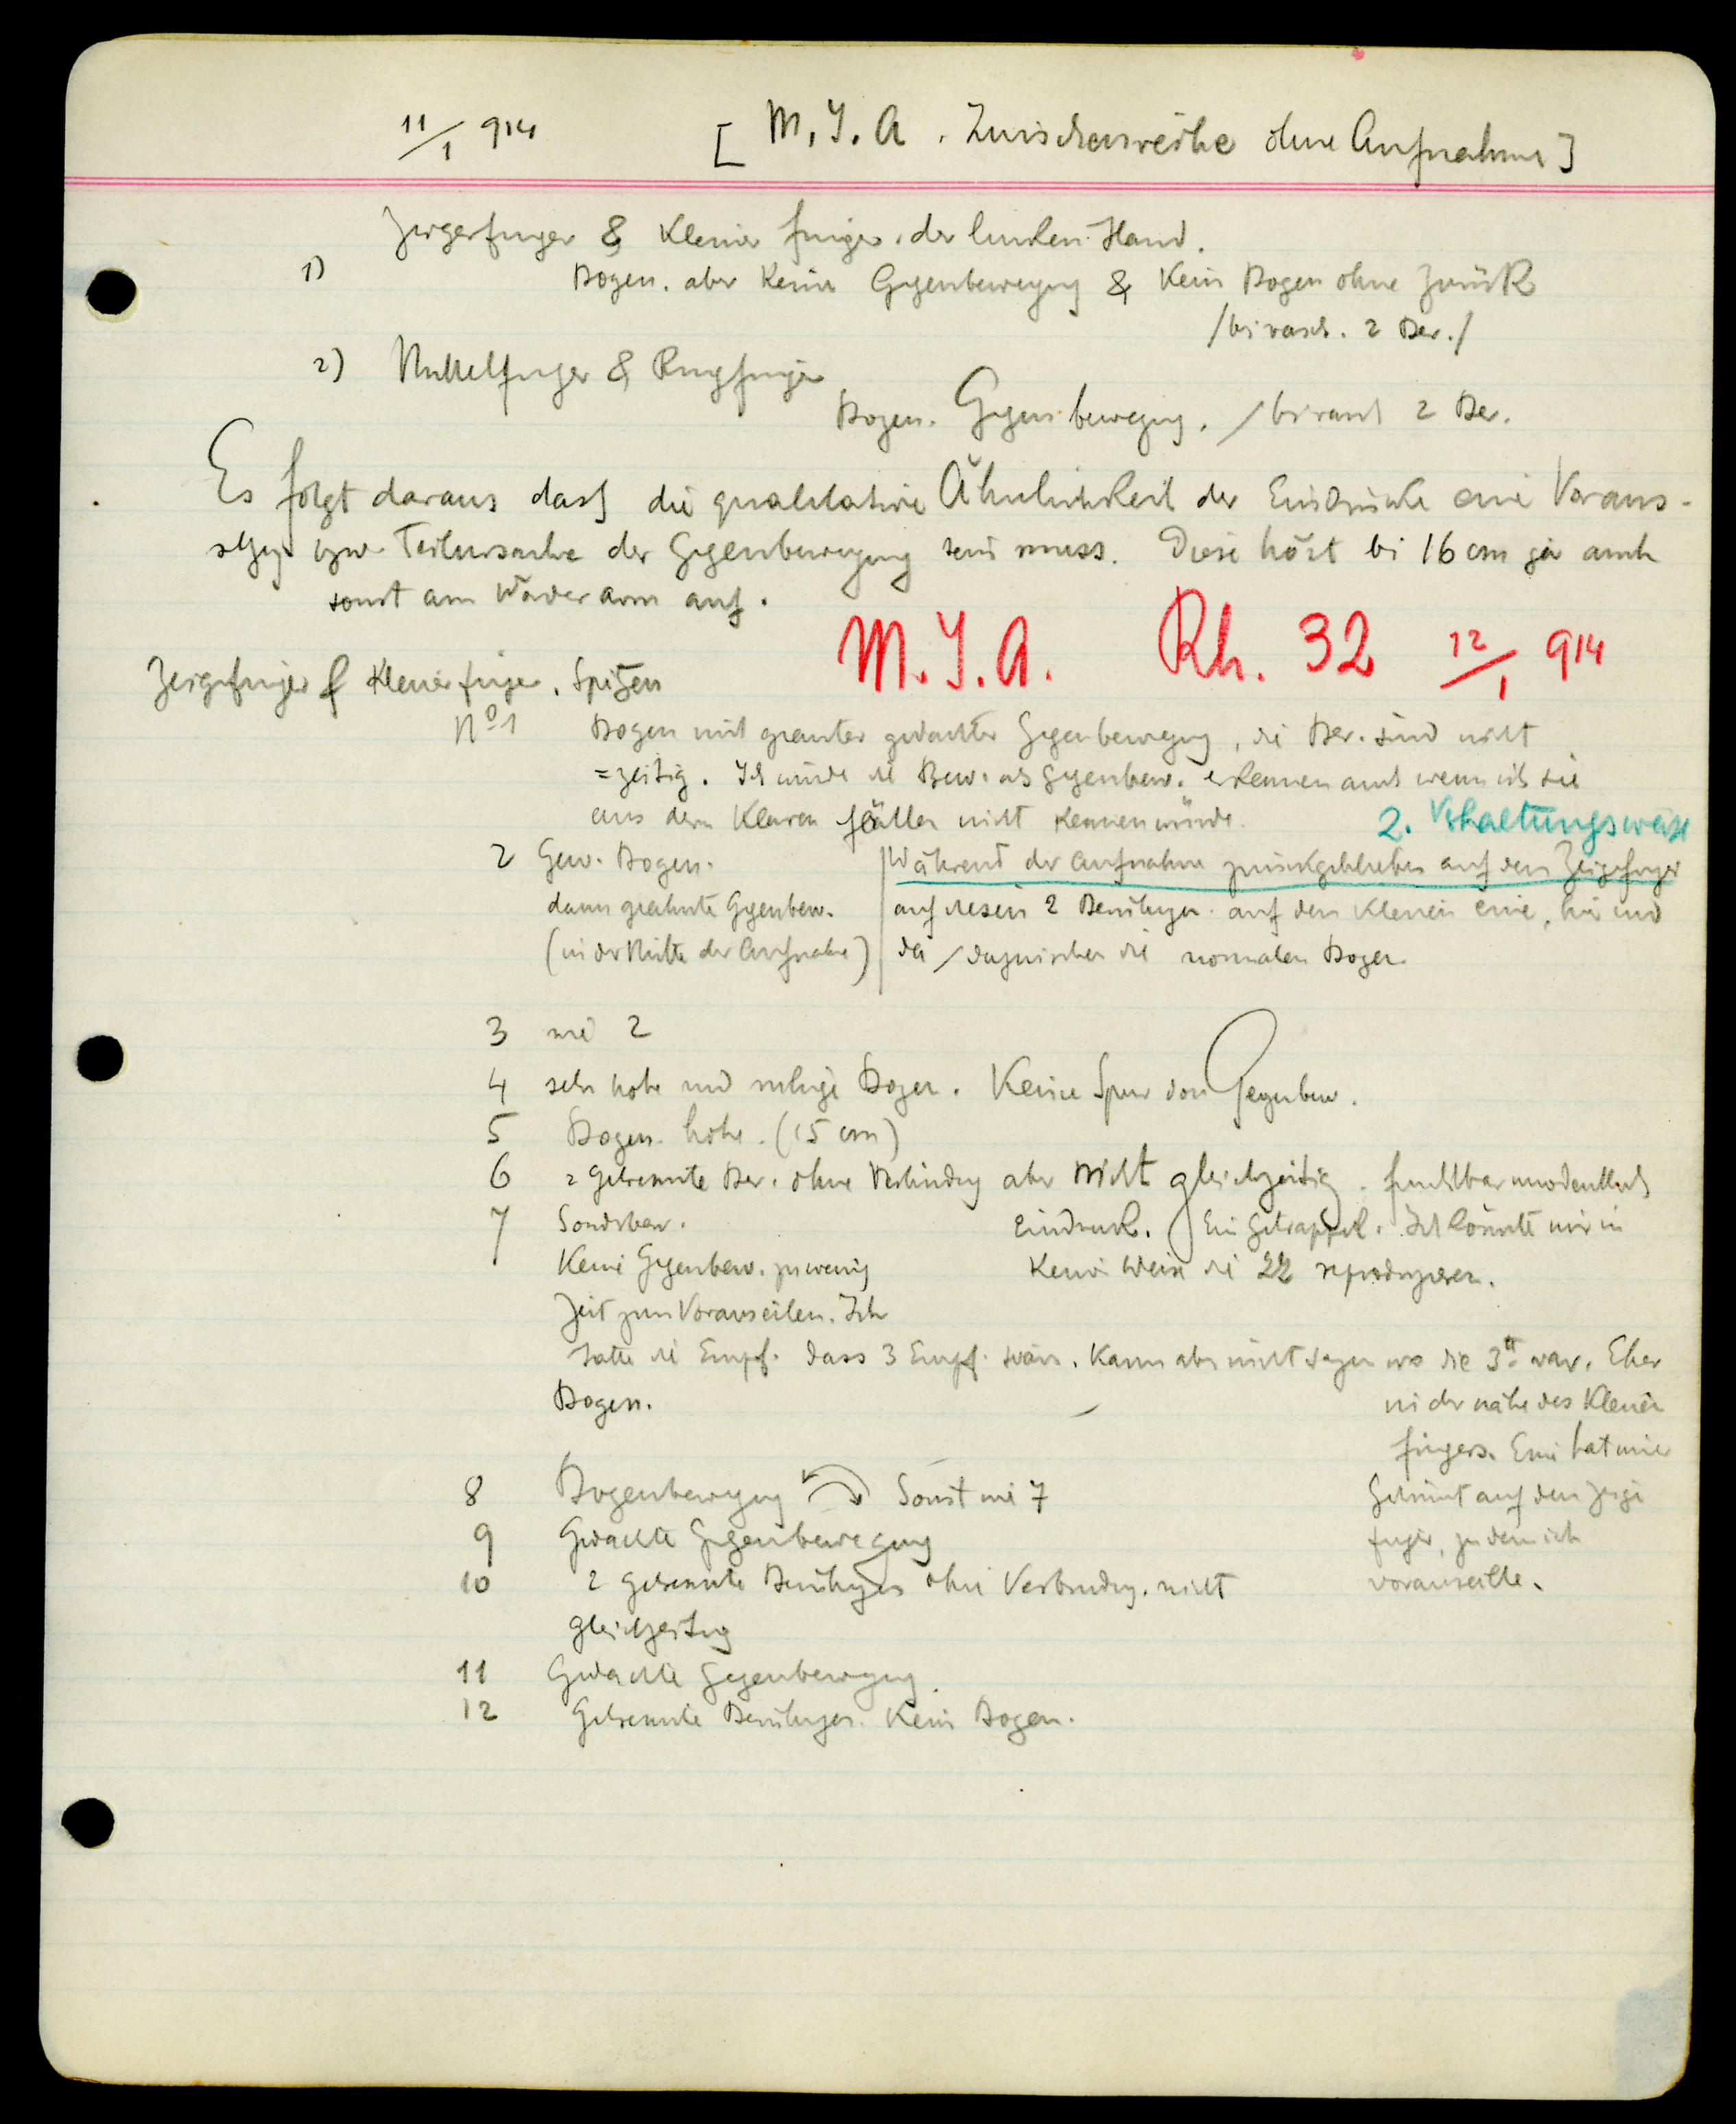 11/1 914 [ M. J. A. Zwischenreihe ohne Aufnahme ]
Zeigefinger & kleiner finger der linken Hand.
1) Bogen. aber keine Gegenbewegung & kein Bogen ohne zurück
/bei rasch. 2 Ber./
2) Mittelfinger & Ringfinger
Bogen. Gegenbewegung. /bei rasch 2 Ber.
Es folgt daraus dass die qualitative Ähnlichkeit der Eindrücke eine Voraus-
setzg. bzw. Teilursache der Gegenbewegung sein muss. Diese hört bei 16 cm ja auch
sonst am Vorderarm auf.
M. J. A. Rh. 32 12/1 914
Zeigefinger & kleiner finger. Spitzen
No 1 Bogen mit gedachter Gegenbewegung, die Ber. sind nicht
=zeitig. Ich würde die Bew. als Gegenbew. erkennen auch wenn ich sie
aus den klaren fällen nicht kennen würde.
2. Verhaltungsweise
2 Gew. Bogen.
dann geahnte Gegenbew.
(in der Mitte der Aufnahme)
Während der Aufnahme zurückgeblieben auf dem Zeigefinger
auf diesen 2 Berührungen. auf dem kleinen eine, hie und
da / dazwischen die normalen Bogen
3 wie 2
4 sehr hohe und ruhige Bogen. Keine Spur von Gegenbew.
5 Bogen. hohe. (15 cm)
6 2 getrennte Ber. ohne Verbindung aber nicht gleichzeitig. furchtbar unordentlich
Eindruck. Ein Getrappel. Ich könnte mir in
keiner Weise die 22 reproduzieren.
7 Sonderbar.
Keine Gegenbew. zu wenig
Zeit zum Vorauseilen. Ich
hatte die Empf. dass 3 Empf. wären. Kann aber nicht sagen wo die 3te war. Eher
in der nähe des kleinen
fingers. Eine hat immer
Bogen.
8 Bogenbewegung Sonst wie 7
auf dem Zeige
9 Gedachte Gegenbewegung
finger, zu dem ich
10 2 getrennte Berührungen ohne Verbindung. nicht
vorauseilte.
gleichzeitig
11 Gedachte Gegenbewegung.
12 Getrennte Berührungen. Kein Bogen.